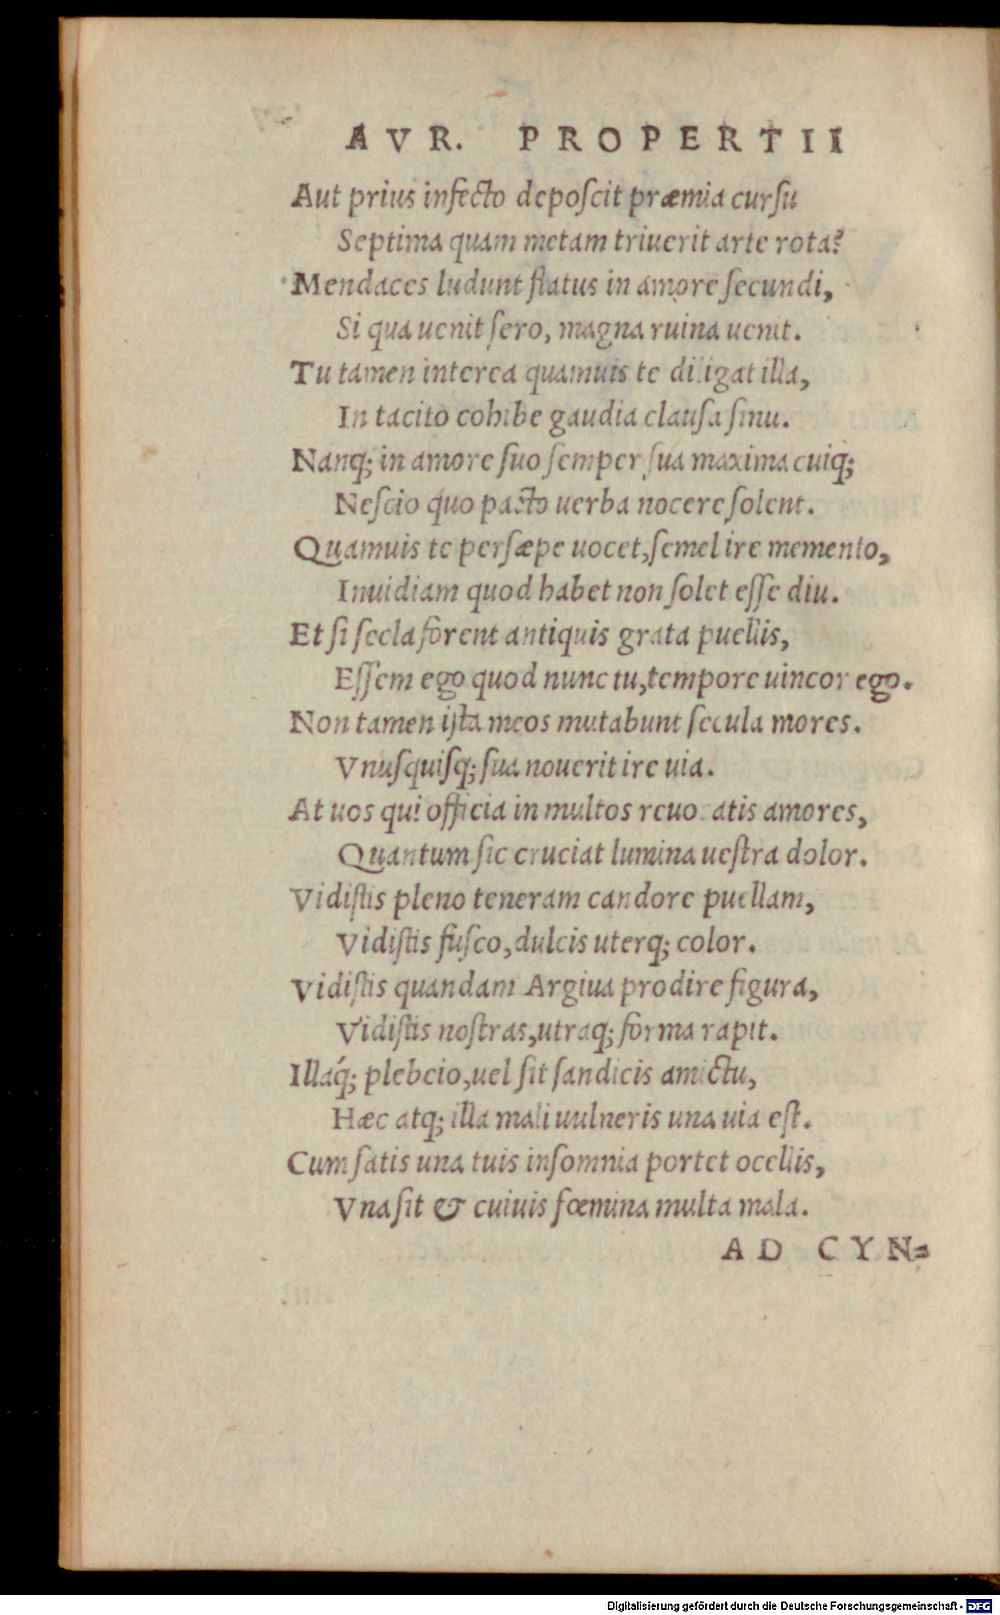 AVR. PROPERTII
Aut prius infecto deposcit præmia cursu
Septima quam metam triuerit arte rota?
Mendaces ludunt flatus in amore secundi,
Si qua uenit sero, magna ruina uenit.
Tu tamen interea quamuis te diligat illa,
In tacito cohibe gaudia clausa sinu.
Nanq; in amore suo semper sua maxima cuiq;
Nescio quo pacto uerba nocere solent.
Quamuis te persæpe uocet, semel ire memento,
Inuidiam quod habet non solet esse diu.
Et si secla forent antiquis grata puellis,
Essem ego quod nunc tu, tempore uincor ego.
Non tamen ista meos mutabunt secula mores.
Vnusquisq; sua nouerit ire uia.
At uos qui officia in multos reuocatis amores,
Quantum sic cruciat lumina uestra dolor.
Vidistis pleno teneram candore puellam,
Vidistis fusco, dulcis uterq; color.
Vidistis quandam Argiua prodire figura,
Vidistis nostras, utraq; forma rapit.
Illaq́; plebeio, uel sit sandicis amictu,
Hæc atq; illa mali uulneris una uia est.
Cum satis una tuis insomnia portet ocellis,
Vna sit & cuiuis fœmina multa mala.
AD CYN=
Digitalisierung gefördert durch die Deutsche Forschungsgemeinschaft - DFG